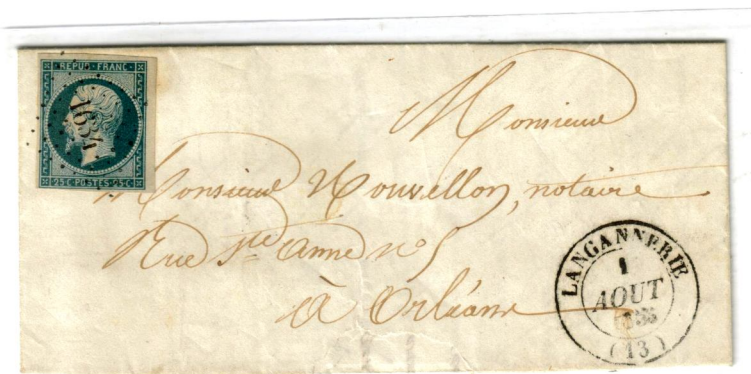 REPUB·FRANC·
1634
25·C·POSTES·25·C
Monsieur
Monsieur Nouvellon, notaire
Rue Ste Anne n° 5
à Orléans
LANGANNERIE
1
AOUT
(13)